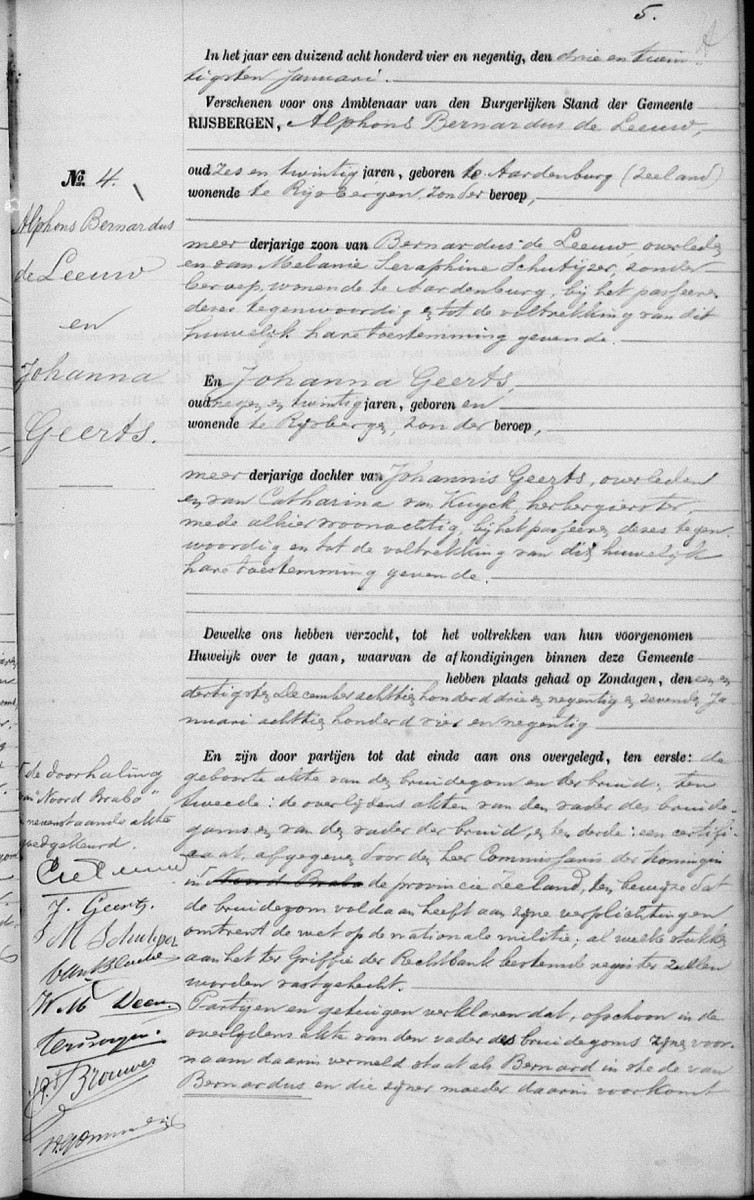 5.
In het jaar een duizend acht honderd vier en negentig, den drie en twin-
tigsten Januari.
Verschenen voor ons Ambtenaar van den Burgerlijken Stand der Gemeente
RIJSBERGEN, Alphons Bernardus de Leeuw,
oud zes en twintig jaren, geboren te Aardenburg (Zeeland)
wonende te Rijsbergen, zonder beroep,
meer derjarige zoon van Bernardus de Leeuw, overleden
en van Melanie Seraphine Schutijzer, zonder
beroep, wonende te Aardenburg, bij het passeeren
dezes tegenwoordig en tot de voltrekking van dit
huwelijk hare toestemming gevende.
En Johanna Geerts,
oud negen en twintig jaren, geboren en
wonende te Rijsbergen, zonder beroep,
meer derjarige dochter van Johannis Geerts, overleden
en van Catharina van Kuyck, herbergierster,
mede alhier woonachtig, bij het passeeren dezes tegen-
woordig en tot de voltrekking van dit huwelijk
hare toestemming gevende.
Dewelke ons hebben verzocht, tot het voltrekken van hun voorgenomen
Huwelijk over te gaan, waarvan de afkondigingen binnen deze Gemeente
hebben plaats gehad op Zondagen, den een en
dertigsten December achttien honderd drie en negentig en zevenden Ja-
nuari achttien honderd vier en negentig
En zijn door partijen tot dat einde aan ons overgelegd, ten eerste: de
geboorte akte van den bruidegom en der bruid; ten
tweede: de overlijdens akten van den vader des bruide-
goms en van den vader der bruid, en ten derde: een certifi-
caat, afgegeven door den heer Commissaris der Koningin
in Noord Brabo de provincie Zeeland, ten bewijze dat
de bruidegom voldaan heeft aan zijne verplichtingen
omtrent de wet op de nationale militie; al welke stukken
aan het ter Griffie der Rechtbank bestemde register zullen
worden vastgehecht.
Partijen en getuigen verklaren dat, ofschoon in de
overlijdens akte van den vader des bruidegoms zijne voor-
naam daarin vermeld staat als Bernard in stede van
Bernardus en die zijner moeder daarin voorkomt
No. 4.
Alphons Bernardus
de Leeuw
en
Johanna
Geerts.
de doorhaling
van "Noord Brabo"
in nevenstaande akte
goedgekeurd.
J. Geerts.
W M Deen
P. J. Brouwer